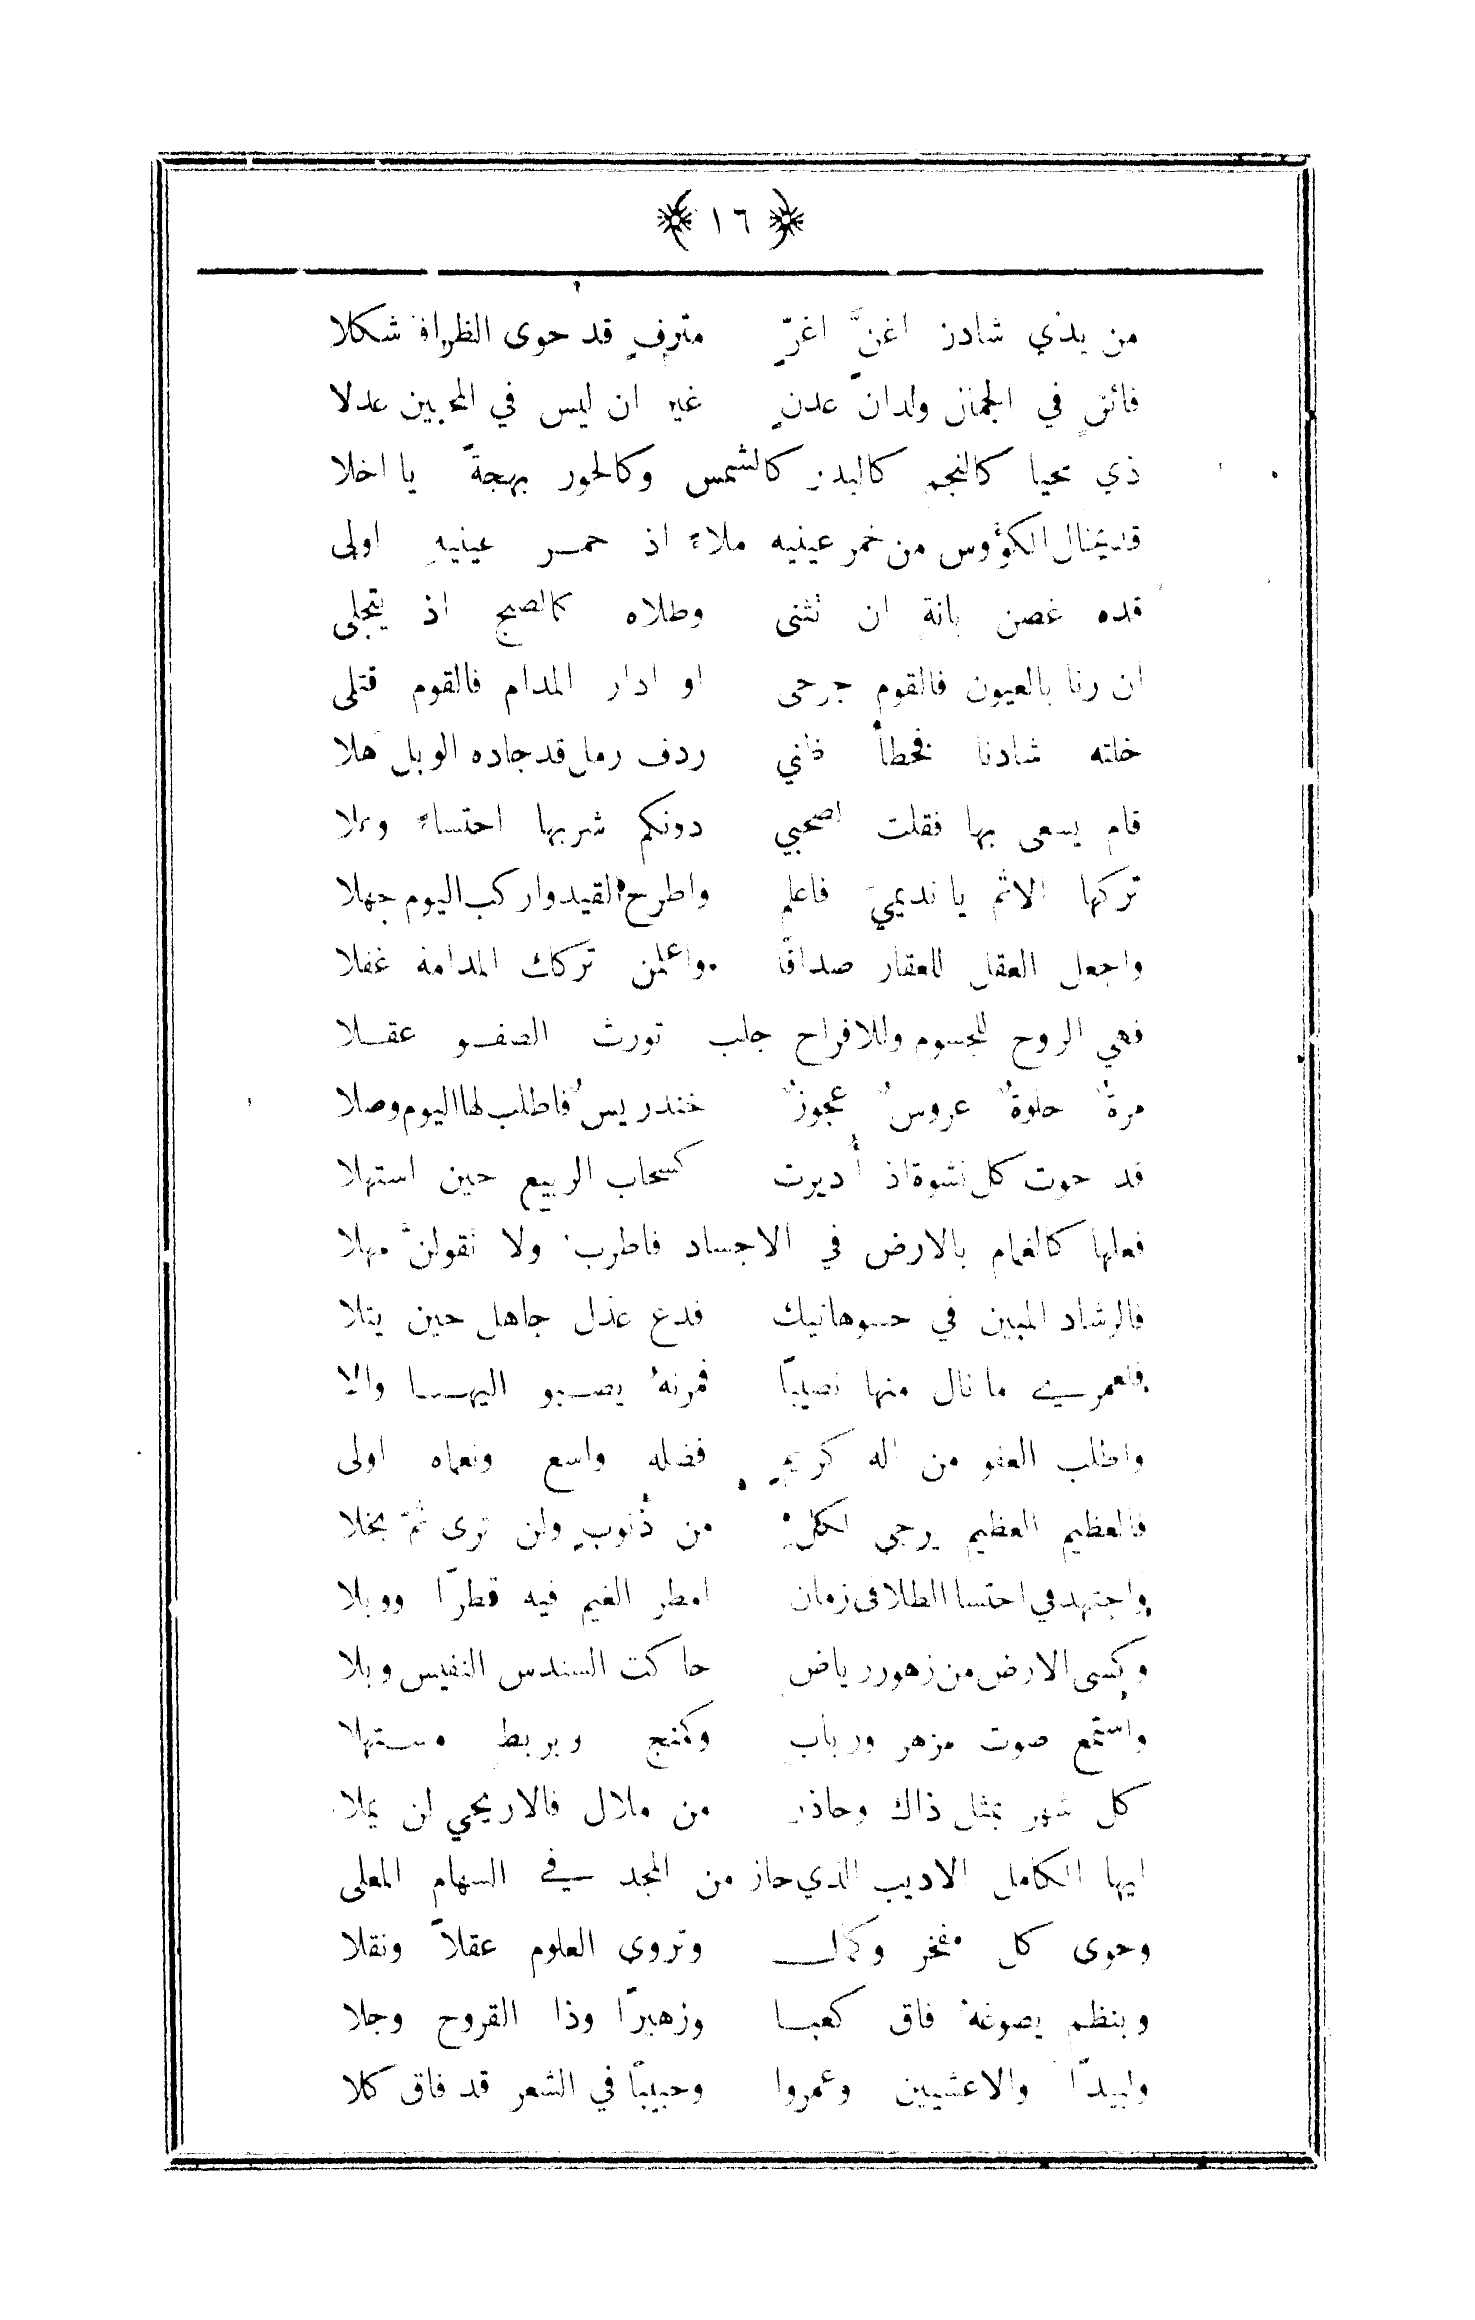 ﴿ ١٦ ﴾
من يدَي شادن اغنَّ اغرٍّ مترفٍ قد حوى الظرافة شكلا
فائقٍ في الجمال ولدان عدنٍ غير ان ليس في المحبين عدلا
ذي محيا كالنجم كالبدر كالشمس وكالحور بهجةً يا اخلا
قد يخال الكؤوس من خمر عينيه ملاءً اذ خمر عينيهِ اولى
قده غصن بانةٍ ان تثنى وطلاه كالصبح اذ يتجلى
ان رنا بالعيون فالقوم جرحى او ادار المدام فالقوم قتلى
خلته شادنا فخطأ ظني ردف رمل قد جاده الوبل هلا
قام يسعى بها فقلت اصحبي دونكم شربها احتساءً وعلا
تركها الاثم يا نديميَ فاعلم واطرح القيد واركب اليوم جهلا
واجعل العقل للعقار صداقًا واعلمن تركك المدامة غفلا
فهي الروح للجسوم وللافراح جلب تورث الصفو عقلا
مرةٌ حلوةٌ عروسٌ عجوزٌ خندريسٌ فاطلب لها اليوم وصلا
قد حوت كل نشوة اذ أُديرت كسحاب الربيع حين استهلا
فعلها كالغمام بالارض في الاجساد فاطرب ولا تقولنَّ مهلا
فالرشاد المبين في حسوهانيك فدع عذل جاهل حين يتلا
فلعمري ما نال منها نصيبًا فمرنهُ يصبو اليها والا
واطلب العفو من اله كريمٍ فضله واسع ونعماه اولى
فالعظيم العظيم يرجى لكلٍ من ذُنوبٍ ولن ترى ثمَّ بخلا
واجتهد في احتسا الطلا في زمان امطر الغيم فيه قطرًا ووبلا
وكسى الارض من زهور رياض حاكت السندس النفيس وبلا
واستمع صوت مزهر ورباب وكمنج وبربط مستهلا
كل شهر بمثل ذاك وحاذر من ملال فالاريحي لن يملا
ايها الكامل الاديب الذي حاز من المجد في السهام المعلى
وحوى كل مفخر وكمال وتروى العلوم عقلاً ونقلا
وبنظم يصوغهُ فاق كعبا وزهيرًا وذا القروح وجلا
ولبيدًا والاعشيين وعمروا وحبيبًا في الشعر قد فاق كلا